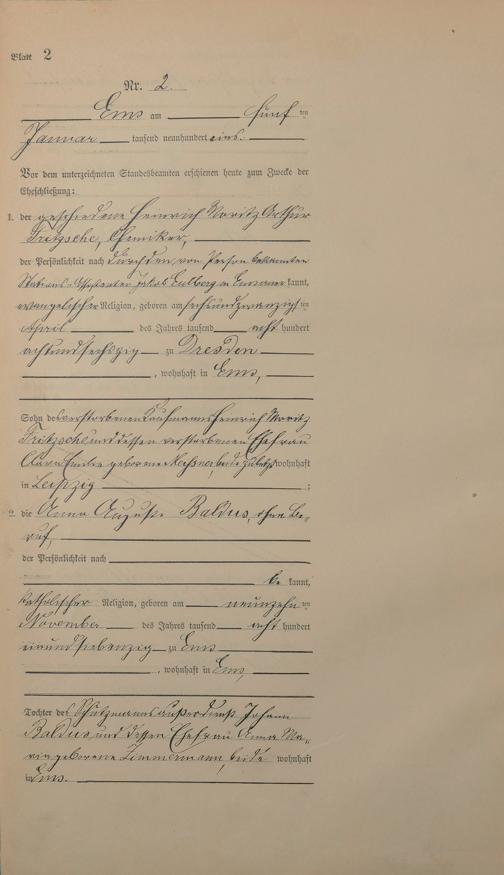 Blatt 2
Nr. 2.
Ems am fünf ten
Januar tausend neunhundert eins.
Vor dem unterzeichneten Standesbeamten erschienen heute zum Zwecke der
Eheschließung:
1. der geschiedene Heinrich Moritz Arthur
Fritzsche, Chemiker,
der Persönlichkeit nach durch den, von Person bekannten
Stations-Assistenten Jakob in Ems aner kannt,
evangelischer Religion, geboren am sechsundzwanzigs ten
April des Jahres tausend acht hundert
achtundsechszig zu Dresden
, wohnhaft in Ems,
Sohn des verstorbenen Kaufmanns Heinrich Moritz
Fritzsche und dessen verstorbenen Ehefrau
Clara Emilie geborene beide zuletzt wohnhaft
in Leipzig ;
2. die Anna Auguste Baldus, ohne Be-
ruf,
der Persönlichkeit nach
be kannt,
katholischer Religion, geboren am neunzehn ten
November des Jahres tausend acht hundert
undsiebenzig zu Ems
, wohnhaft in Ems,
Tochter des Schutzmanns außer Dienst Johann
Baldus und dessen Ehefrau Anna Ma-
ria geborene Zimmermann, beide wohnhaft
in Ems.